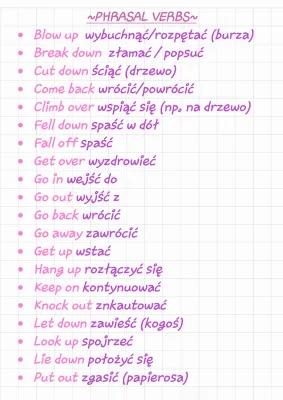 ~PHRASAL VERBS~
• Blow up wybuchnąć/rozpętać (burza)
• Break down złamać / popsuć
• Cut down ściąć (drzewo)
• Come back wrócić/powrócić
• Climb over wspiąć się (np. na drzewo)
• Fell down spaść w dół
• Fall off spaść
• Get over wyzdrowieć
• Go in wejść do
• Go out wyjść z
• Go back wrócić
• Go away zawrócić
• Get up wstać
• Hang up rozłączyć się
• Keep on kontynuować
• Knock out znkautować
• Let down zawieść (kogoś)
• Look up spojrzeć
• Lie down położyć się
• Put out zgasić (papierosa)